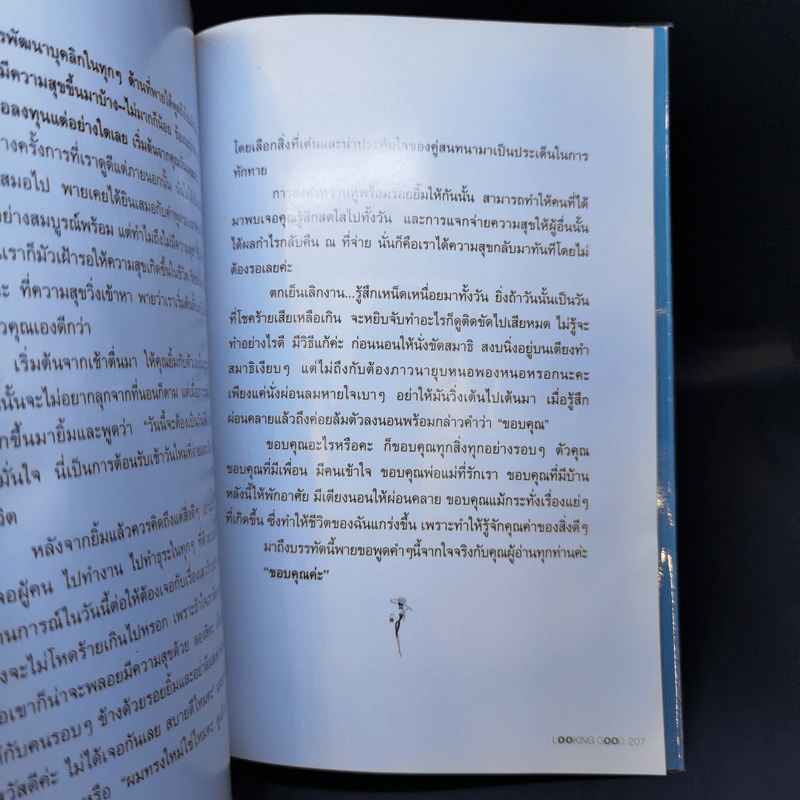 รพัฒนาบุคลิกในทุกๆ ด้านที่พายได้พูด
มีความสุขขึ้นมาบ้าง-ไม่มากก็น้อย
อลงทุนแต่อย่างใดเลย เริ่มต้นจากคุณ
างครั้งการที่เราดูดีแต่ภายนอกนั้น
สมอไป พายเคยได้ยินเสมอกับคำพูด
ย่างสมบูรณ์พร้อม แต่ทำไมถึงไม่มีความสุข
เราก็มัวเฝ้ารอให้ความสุขเกิดขึ้นในชีวิต
ะ ที่ความสุขวิ่งเข้าหา พายว่าเราเริ่มต้น
วคุณเองดีกว่า
เริ่มต้นจากเช้าตื่นมา ให้คุณยิ้มกับตัวเอง
นั้นจะไม่อยากลุกจากที่นอนก็ตาม แต่เมื่อ
กขึ้นมายิ้มและพูดว่า “วันนี้จะต้องเป็นวันที่
มั่นใจ นี่เป็นการต้อนรับเช้าวันใหม่ที่ง่าย
วิต
หลังจากยิ้มแล้วควรคิดถึงแต่สิ่งดีๆ
จอผู้คน ไปทำงาน ไปทำธุระในทุกๆ ที่
านการณ์ในวันนี้ต่อให้ต้องเจอกับเรื่อง
งจะไม่โหดร้ายเกินไปหรอก เพราะถ้าใจเรา
อเขาก็น่าจะพลอยมีความสุขด้วย ลองคิด
ห้กับคนรอบๆ ข้างด้วยรอยยิ้มและ
วัสดีค่ะ ไม่ได้เจอกันเลย สบายดีไหมคะ”
หรือ “ผมทรงใหม่ใช่ไหมคะ
โดยเลือกสิ่งที่เด่นและน่าประทับใจของคู่สนทนามาเป็นประเด็นในการ
ทักทาย
การส่งคำหวานหูพร้อมรอยยิ้มให้กันนั้น สามารถทำให้คนที่ได้
มาพบเจอคุณรู้สึกสดใสไปทั้งวัน และการแจกจ่ายความสุขให้ผู้อื่นนั้น
ได้ผลกำไรกลับคืน ณ ที่จ่าย นั่นก็คือเราได้ความสุขกลับมาทันทีโดยไม่
ต้องรอเลยค่ะ
ตกเย็นเลิกงาน...รู้สึกเหน็ดเหนื่อยมาทั้งวัน ยิ่งถ้าวันนั้นเป็นวัน
ที่โชคร้ายเสียเหลือเกิน จะหยิบจับทำอะไรก็ดูติดขัดไปเสียหมด ไม่รู้จะ
ทำอย่างไรดี มีวิธีแก้ค่ะ ก่อนนอนให้นั่งขัดสมาธิ สงบนิ่งอยู่บนเตียงทำ
สมาธิเงียบๆ แต่ไม่ถึงกับต้องภาวนายุบหนอพองหนอหรอกนะคะ
เพียงแค่นั่งผ่อนลมหายใจเบาๆ อย่าให้มันวิ่งเต้นไปเต้นมา เมื่อรู้สึก
ผ่อนคลายแล้วถึงค่อยล้มตัวลงนอนพร้อมกล่าวคำว่า “ขอบคุณ”
ขอบคุณอะไรหรือคะ ก็ขอบคุณทุกสิ่งทุกอย่างรอบๆ ตัวคุณ
ขอบคุณที่มีเพื่อน มีคนเข้าใจ ขอบคุณพ่อแม่ที่รักเรา ขอบคุณที่มีบ้าน
หลังนี้ให้พักอาศัย มีเตียงนอนให้ผ่อนคลาย ขอบคุณแม้กระทั่งเรื่องแย่ๆ
ที่เกิดขึ้น ซึ่งทำให้ชีวิตของฉันแกร่งขึ้น เพราะทำให้รู้จักคุณค่าของสิ่งดีๆ
มาถึงบรรทัดนี้พายขอพูดคำๆนี้จากใจจริงกับคุณผู้อ่านทุกท่านค่ะ
“ขอบคุณค่ะ”
LOOKING GOOD 207